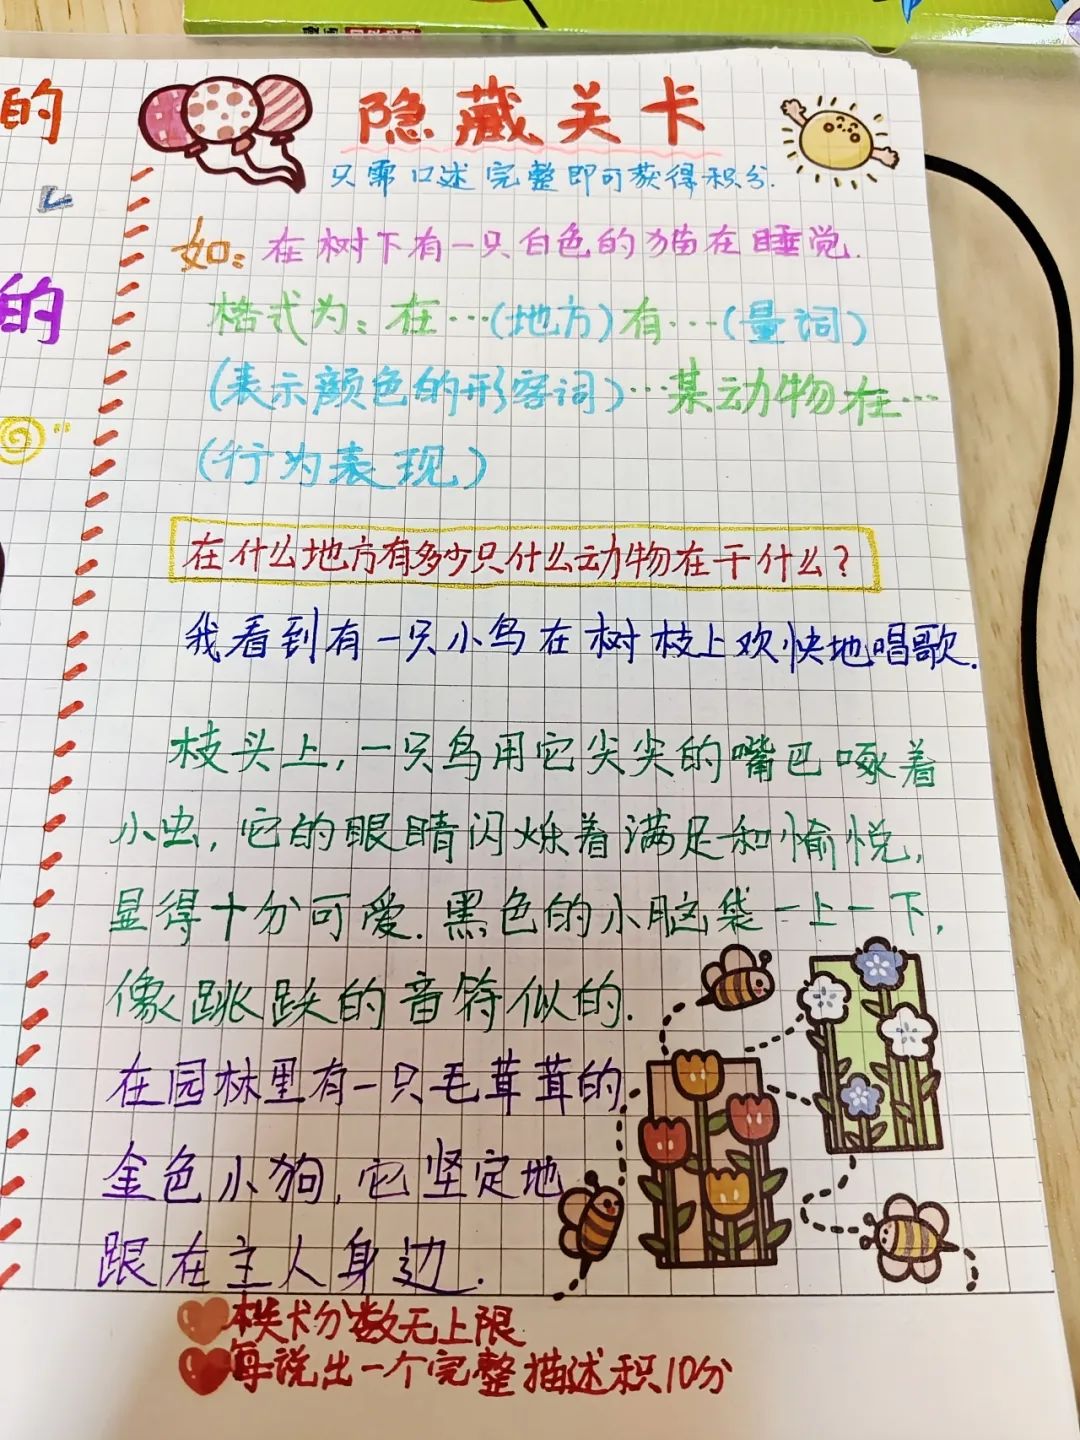 的
的
隐藏关卡
只需口述完整即可获得积分.
如：在树下有一只白色的猫在睡觉.
格式为：在…(地方)有…(量词)
(表示颜色的形容词)…某动物在…
(行为表现)
在什么地方有多少只什么动物在干什么？
我看到有一只小鸟在树枝上欢快地唱歌.
枝头上,一只鸟用它尖尖的嘴巴啄着
小虫,它的眼睛闪烁着满足和愉悦,
显得十分可爱.黑色的小脑袋一上一下,
像跳跃的音符似的.
在园林里有一只毛茸茸的
金色小狗,它坚定地
跟在主人身边.
本关卡分数无上限
每说出一个完整描述积10分